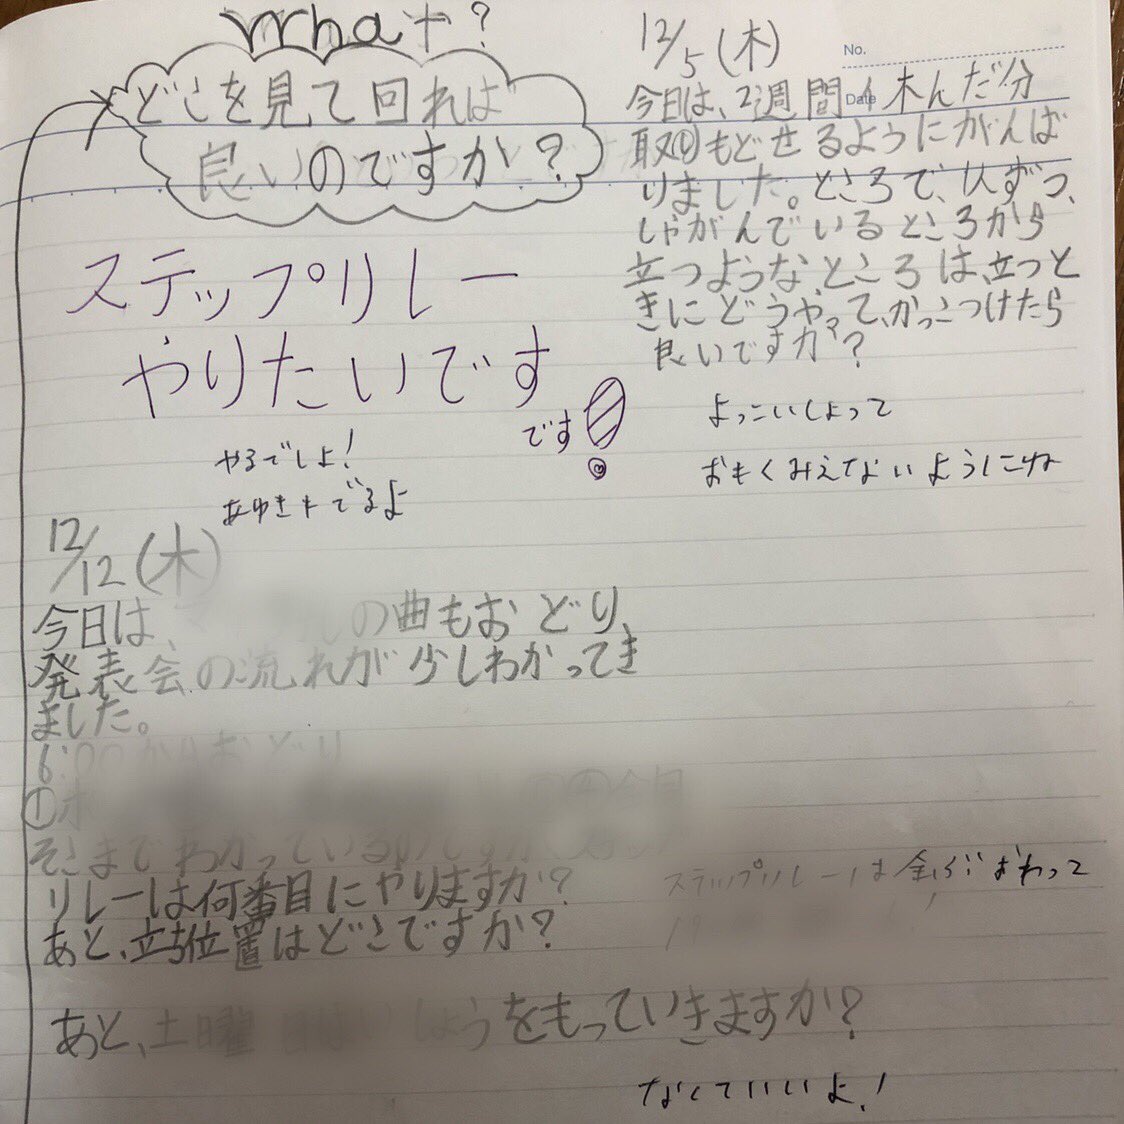 What?
どこを見て回れば
良いのですか?
ステップリレー
やりたいです
です
やるでしょ!
あゆきもでるよ
12/5(木)
No.
Date
今日は、2週間休んだ分
取りもどせるようにがんば
りました。ところで、1人ずつ、
しゃがんでいるところから
立つような、ところは、立つと
きにどうやって、かっこつけたら
良いですか?
よっこいしょって
おもくみえないようにね
12/12(木)
今日は、の曲もおどり、
発表会の流れが少しわかってき
ました。
6:00からおどり
①
今日
そこまでわかっているのですが、
リレーは何番目にやりますか?
あと、立ち位置はどこですか?
ステップリレーは全ぶおわって
あと、土曜日はしょうをもっていきますか?
なくていいよ!